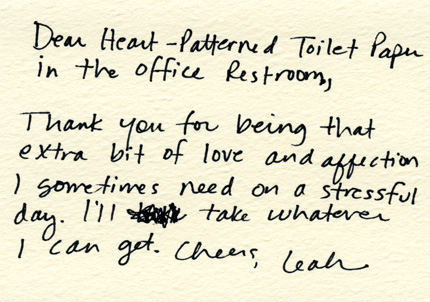 Dear Heart-Patterned Toilet Paper
in the Office Restroom,
Thank you for being that
extra bit of love and affection
I sometimes need on a stressful
day. I'll take whatever
I can get. Cheers, Leah